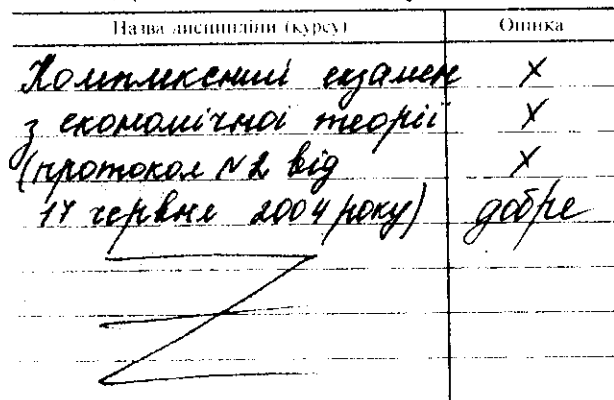 Назва дисципліни (курсу) Оцінка
Комплексний екзамен X
з економічної теорії X
(протокол №2 від X
17 червня 2004 року) добре